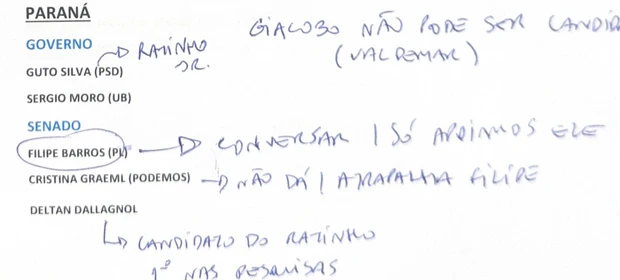 PARANÁ
GIACOBO NÃO PODE SER CANDIDA
(VALDEMAR)
GOVERNO
RATINHO JR.
GUTO SILVA (PSD)
SERGIO MORO (UB)
SENADO
FILIPE BARROS (PL) CONVERSAR | SÓ APOIAMOS ELE
CRISTINA GRAEML (PODEMOS) NÃO DÁ | ATRAPALHA FILIPE
DELTAN DALLAGNOL
CANDIDATO DO RATINHO
1º NAS PESQUISAS